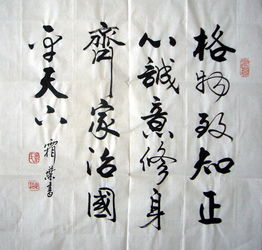 格物致知正
心誠意修身
齊家治國
平天下
霜葉書